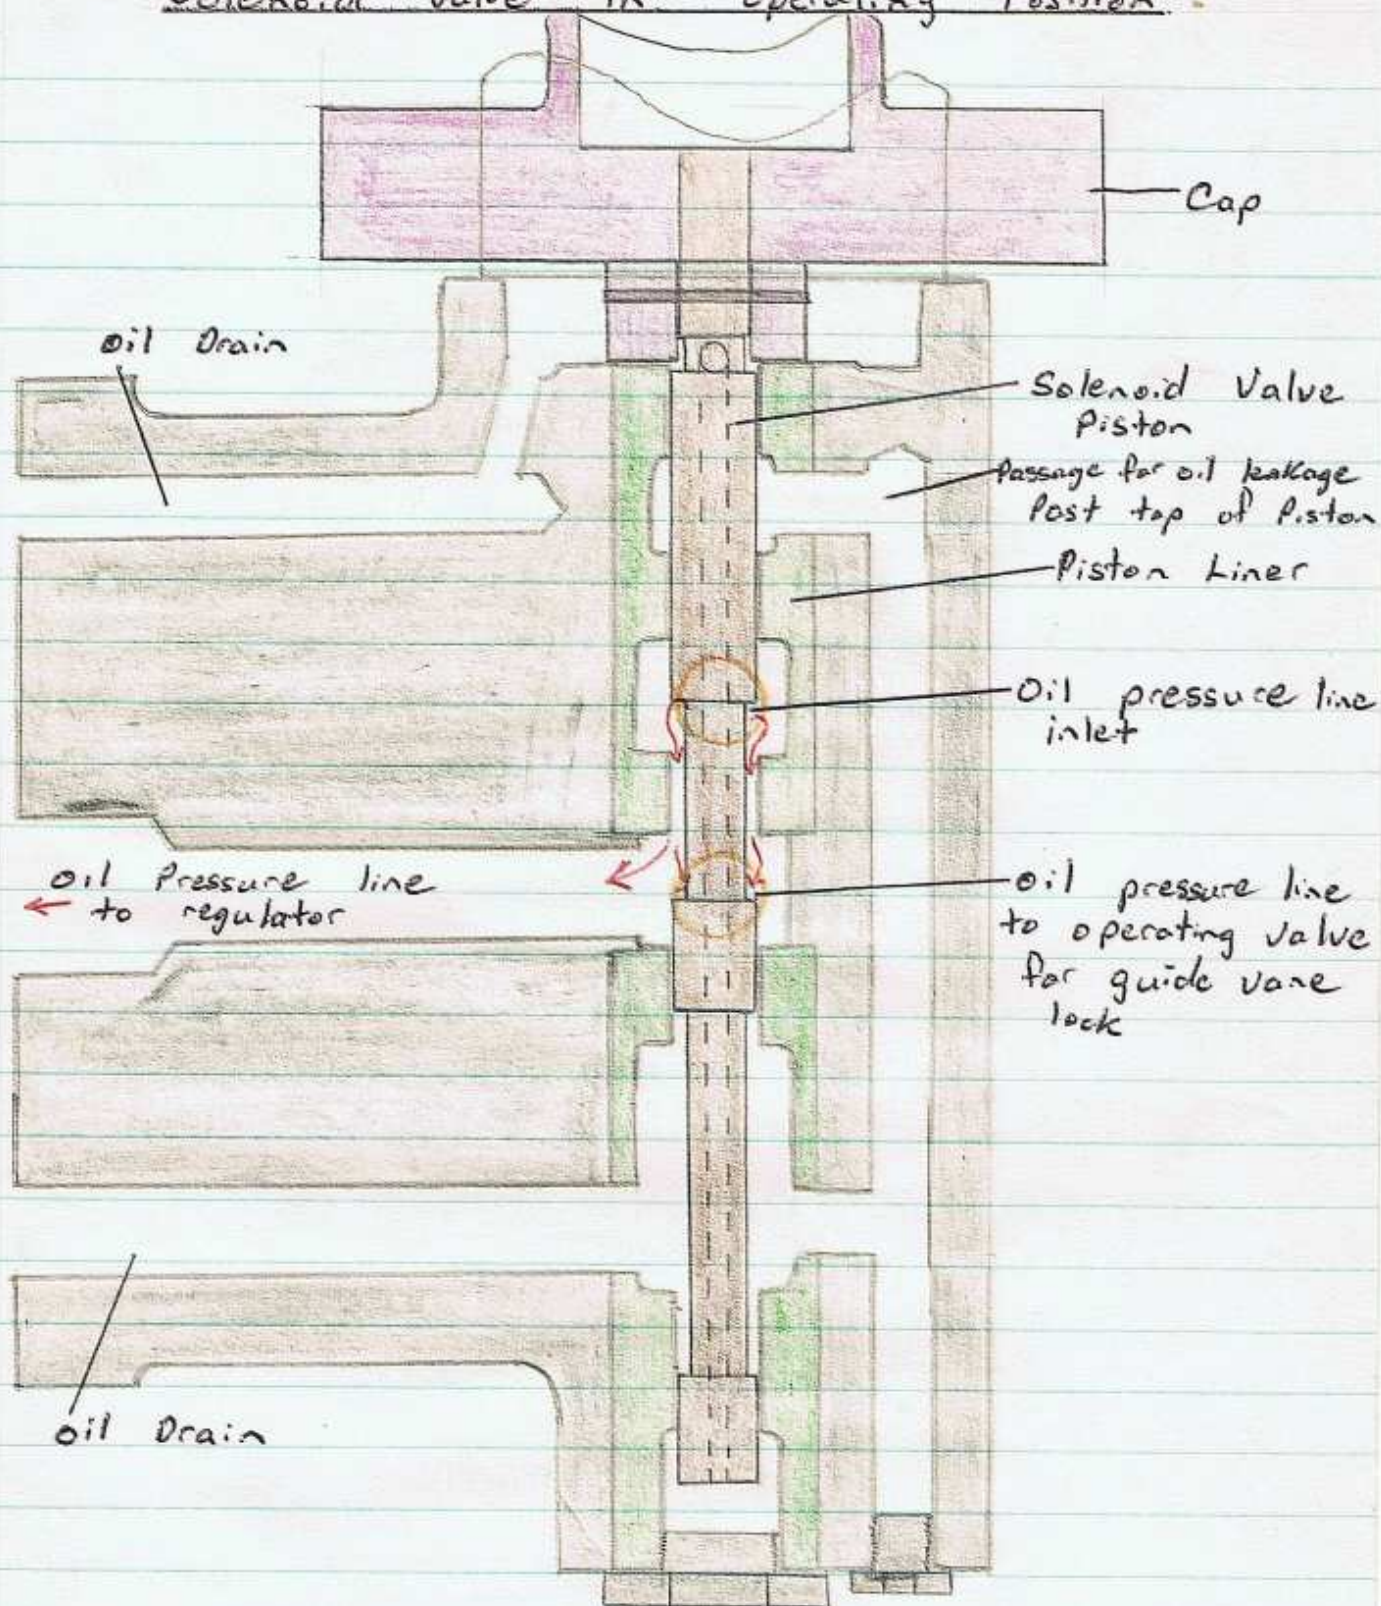 Solenoid Valve in Operating Position.
Cap
Oil Drain
Solenoid Valve
Piston
Passage for oil leakage
Past top of Piston
Piston Liner
Oil pressure line
inlet
Oil Pressure line
to regulator
Oil pressure line
to operating valve
for guide vane
lock
Oil Drain